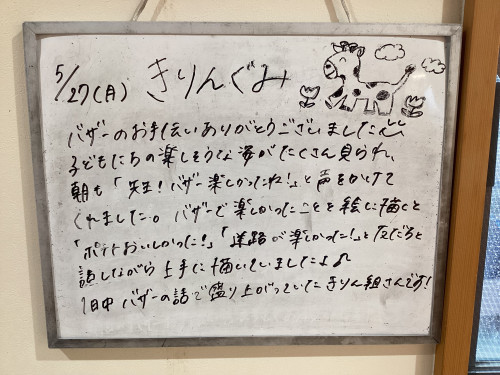 5/27(月) きりんぐみ
バザーのお手伝いありがとうございました
子どもたちの楽しそうな姿がたくさん見られ、
朝も「先生!バザー楽しかったね!」と声をかけて
くれました。バザーで楽しかったことを絵に描くと
「ポテトおいしかった!」「迷路が楽しかった!」と友だちと
話しながら上手に描いていましたよ♪
1日中バザーの話で盛り上がっていたきりん組さんです!